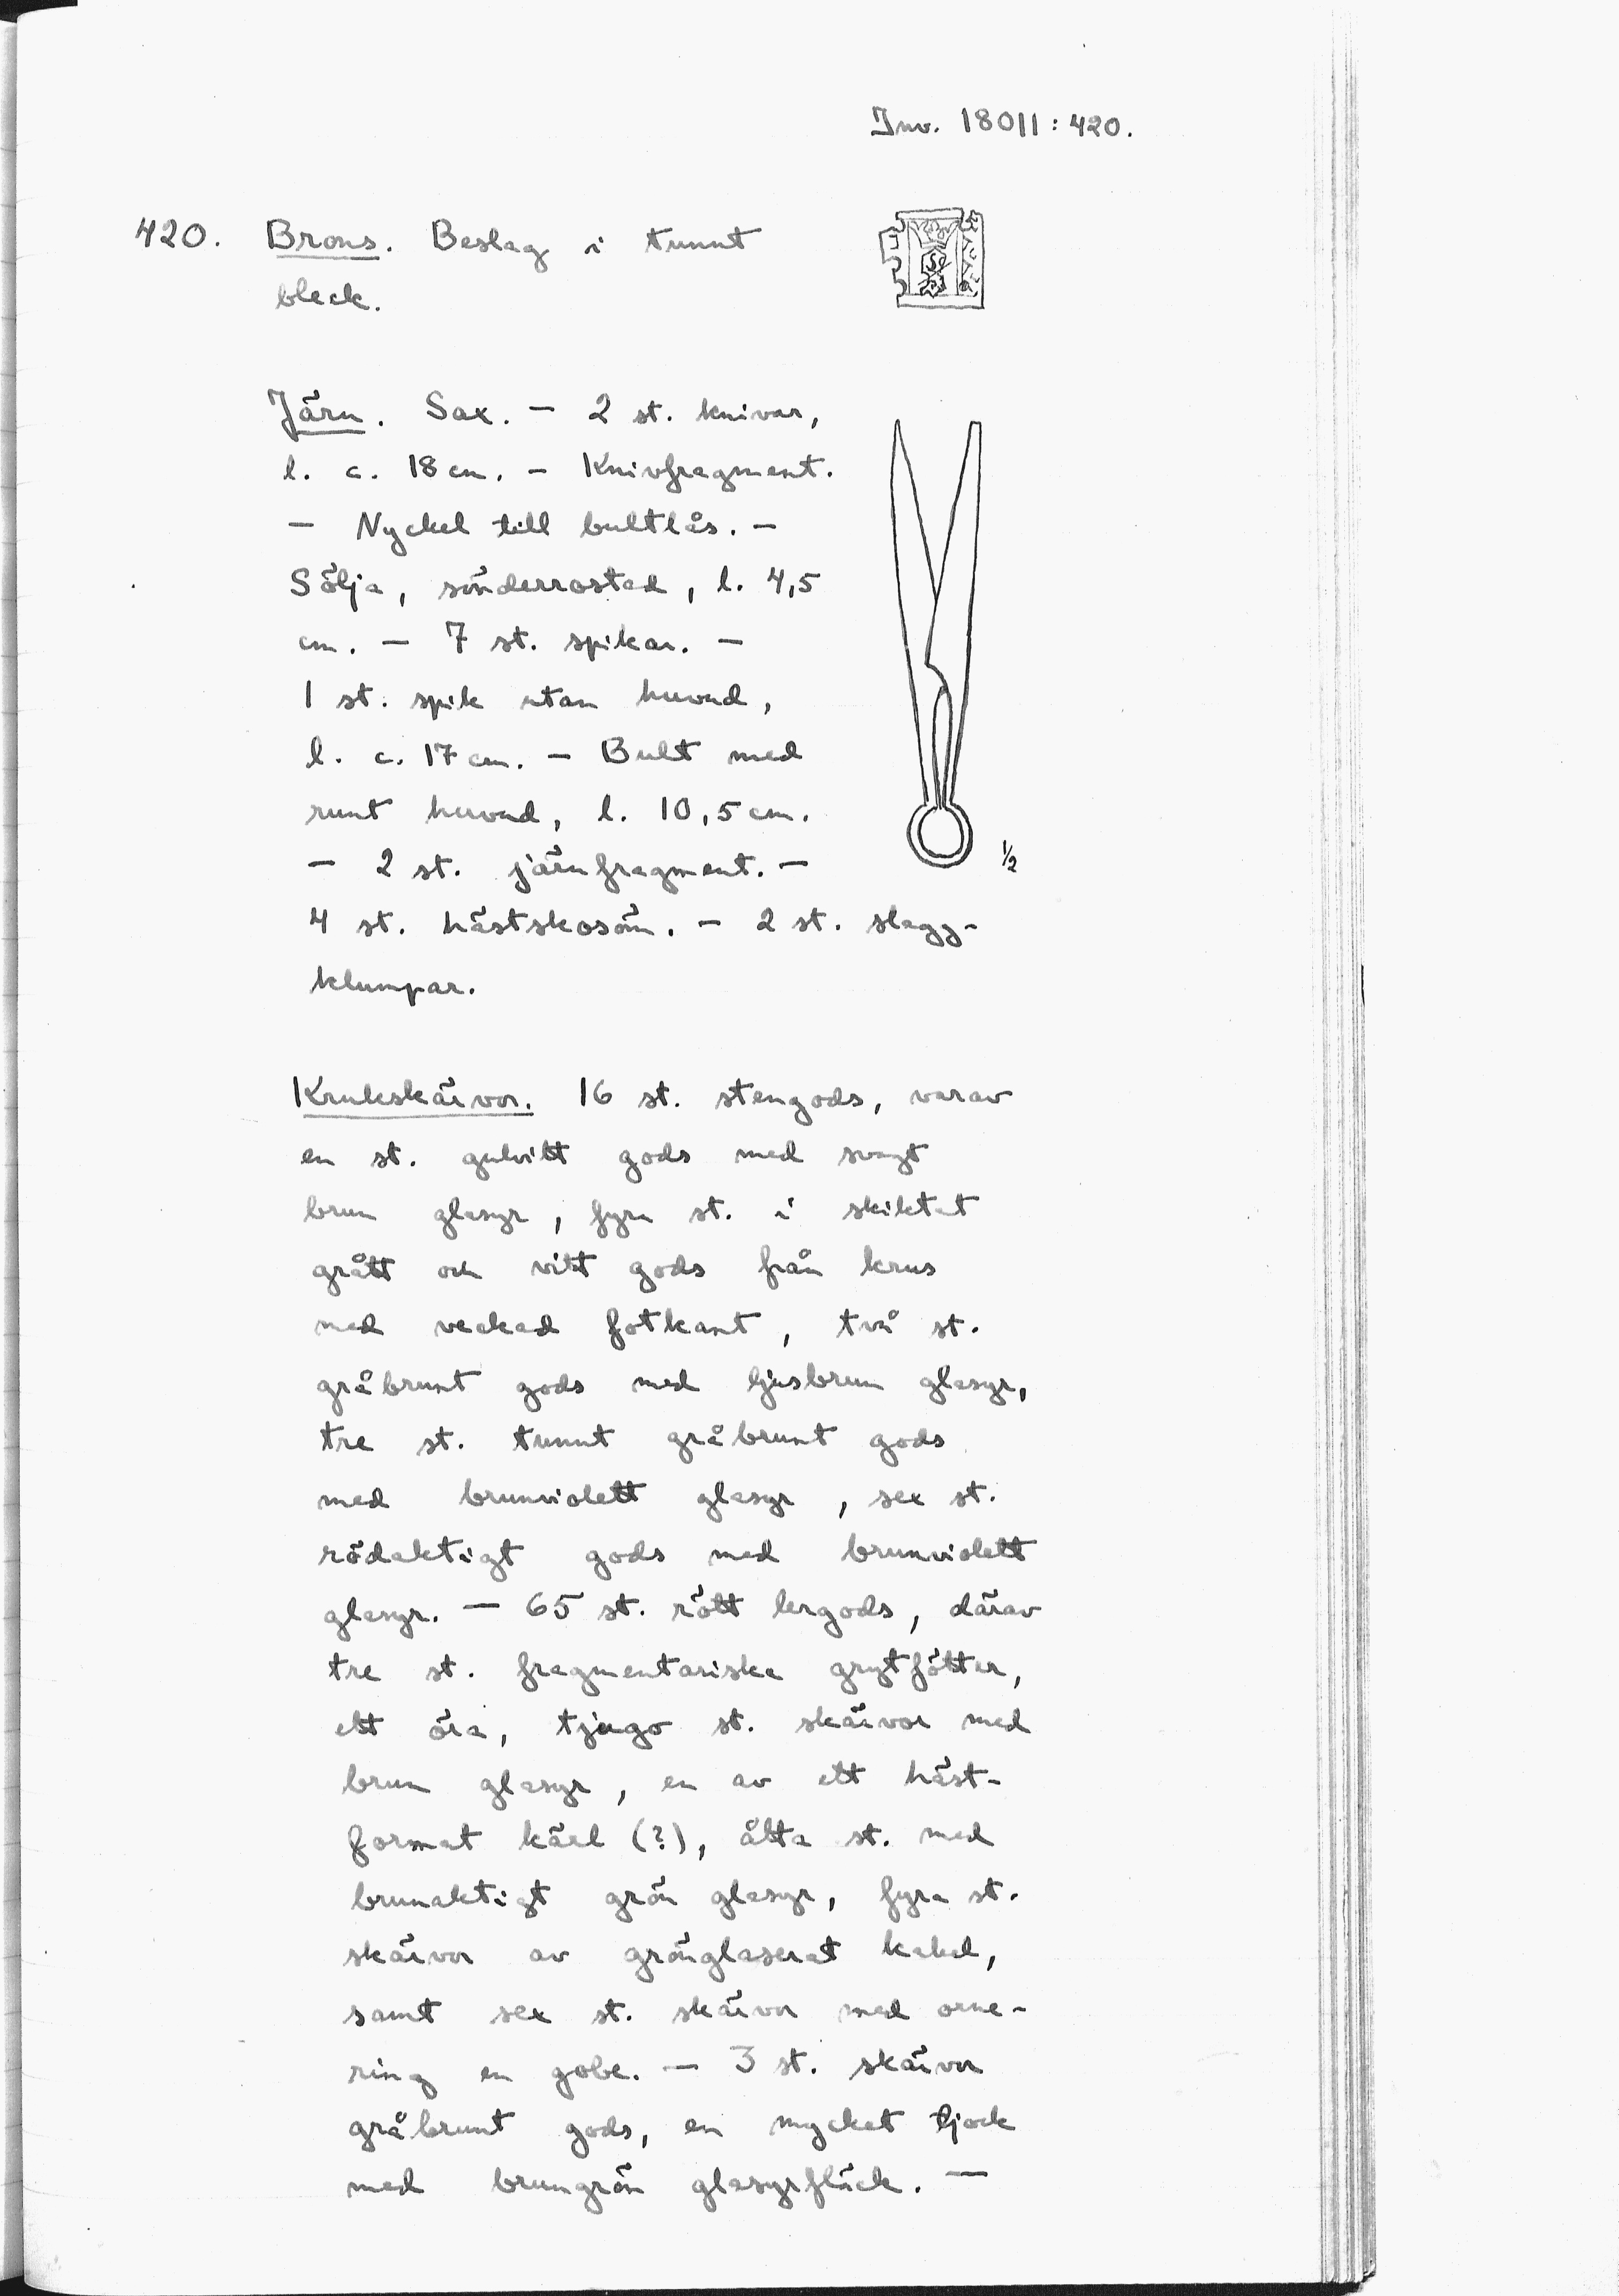 Inv. 18011:420.
420. Brons. Beslag i tunnt
bleck.
Järn. Sax. — 2 st. knivar,
l. c. 18 cm. — Knivfragment.
— Nyckel till bultlås. —
Sölja, sönderrostad, l. 4,5
cm. — 7 st. spikar. —
1 st. spik utan huvud,
l. c. 17 cm. — Bult med
runt huvud, l. 10,5 cm.
— 2 st. järnfragment. —
1/2
4 st. hästskosöm. — 2 st. slagg-
klumpar.
Krukskärvor. 16 st. stengods, varav
en st. gulvitt gods med svagt
brun glasyr, fyra st. i skiktat
grått och vitt gods från krus
med veckad fotkant, två st.
gråbrunt gods med ljusbrun glasyr,
tre st. tunnt gråbrunt gods
med brunviolett glasyr, sex st.
rödaktigt gods med brunviolett
glasyr. — 65 st. rött lergods, därav
tre st. fragmentariska grytfötter,
ett öra, tjugo st. skärvor med
brun glasyr, en av ett häst-
format kärl (?), åtta st. med
brunaktigt grön glasyr, fyra st.
skärvor av grönglaserat kakel,
samt sex st. skärvor med orne-
ring en gobe. — 3 st. skärvor
gråbrunt gods, en mycket tjock
med brungrön glasyrfläck. —